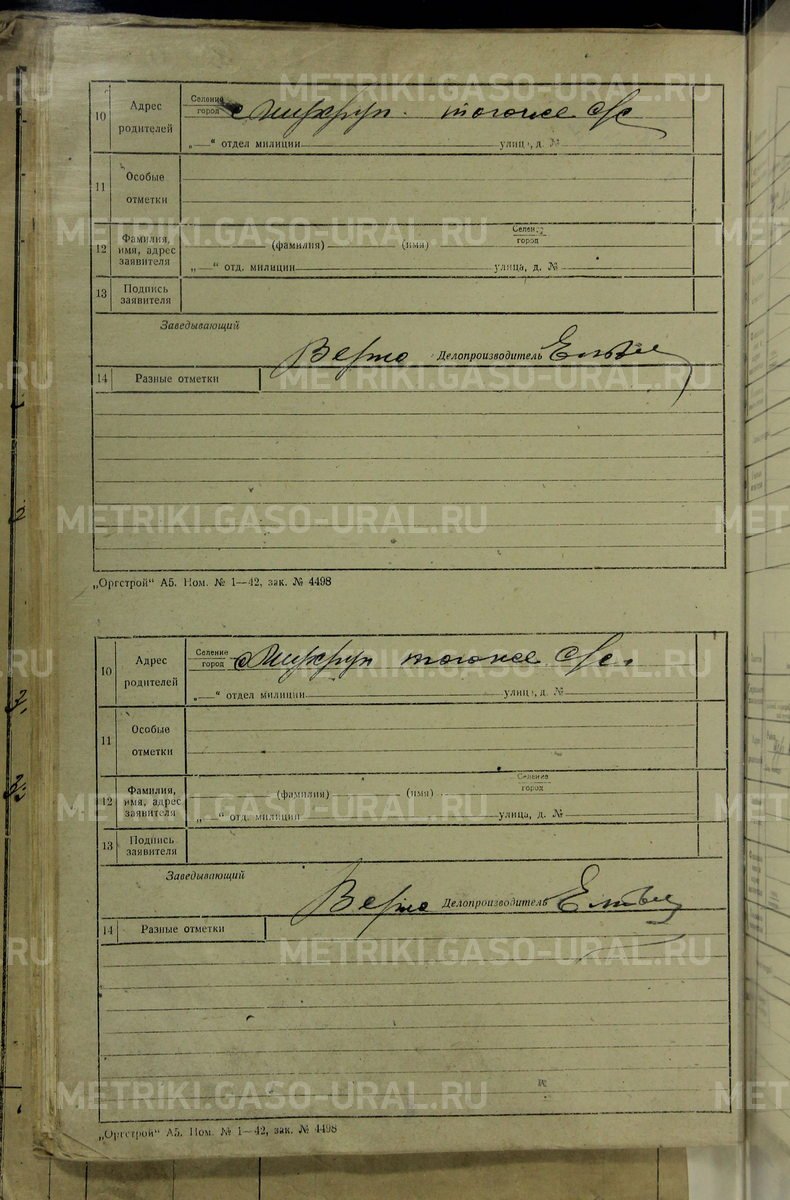 METRIKI.GASO-URAL.RU
10 Адрес родителей
Селение
город
„—“ отдел милиции улица, д. №
11 Особые отметки
12 Фамилия, имя, адрес заявителя
(фамилия) (имя) Селение
город
„—“ отд. милиции улица, д. №
13 Подпись заявителя
Заведывающий
Верно Делопроизводитель
14 Разные отметки
METRIKI.GASO-URAL.RU
„Оргстрой“ А5. Ном. № 1—42, зак. № 4498
10 Адрес родителей
Селение
город
„—“ отдел милиции улица, д. №
11 Особые отметки
12 Фамилия, имя, адрес заявителя
(фамилия) (имя) Селение
город
„—“ отд. милиции улица, д. №
13 Подпись заявителя
Заведывающий
Верно Делопроизводитель
14 Разные отметки
METRIKI.GASO-URAL.RU
METRIKI.GASO-URAL.RU
„Оргстрой“ А5. Ном. № 1—42, зак. № 4498